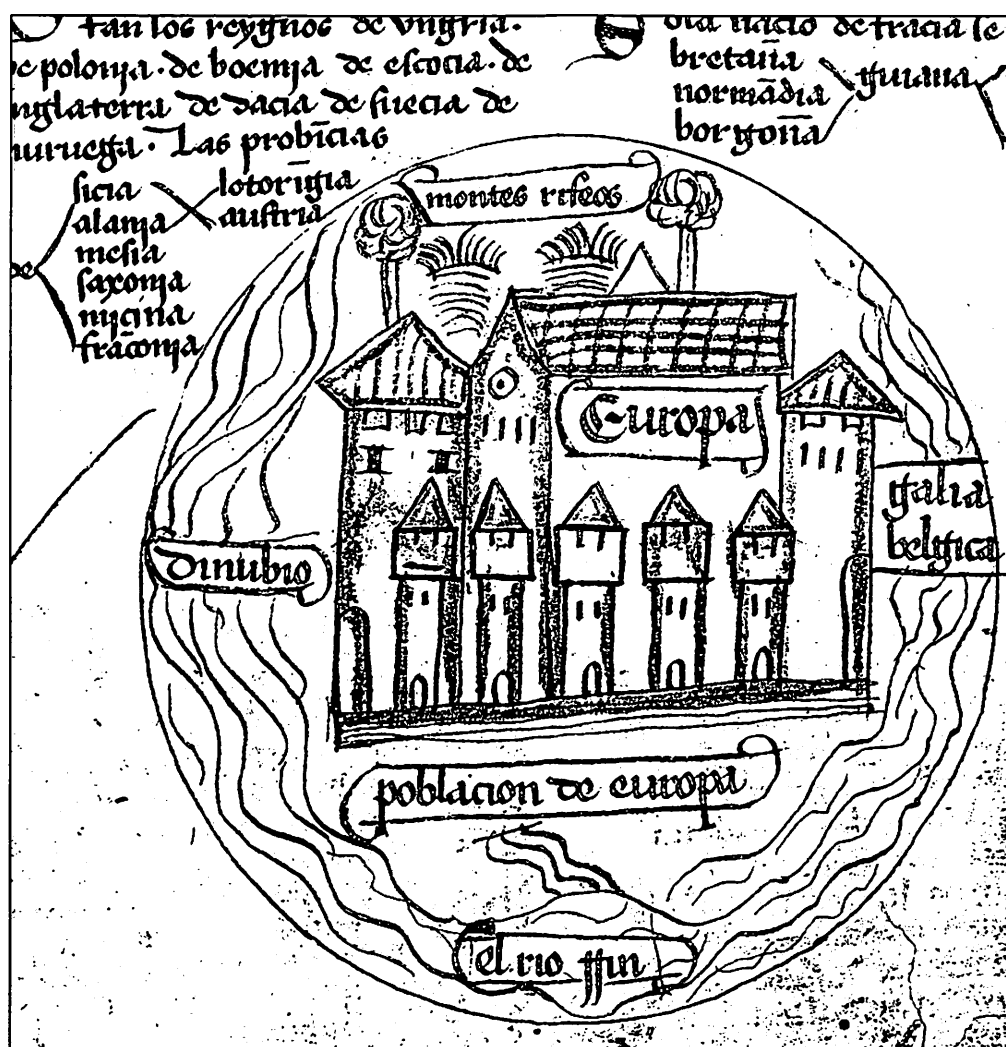 tan los reygnos de vngria.
de polonja. de boemja de escocia. de
nglaterra de dacia de suecia de
nuruega. Las probīcias
sicia
alanja
mesia
saxonja
mjcina
frācōnja
lotorīgia
austria
nacio de fracia se
bretaña
normādia
borgoña
guiana
montes rifeos
Europa
galia
belgica
dinubio
poblacion de europa
el rio rrin